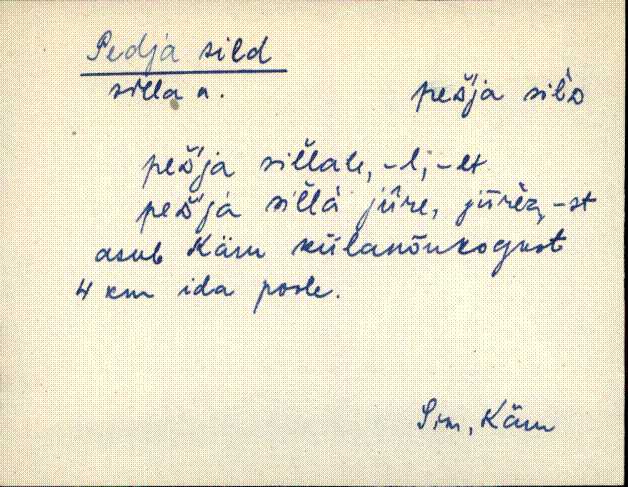 Pedja sild
silla a. peᴅ́ja sil'ᴅ
peᴅ́ja sillale, -l, -lt
peᴅ́ja silla jūre, jūrēz, -st
asub Käru külanõukogust
4 km ida poole.
Sim, Käru